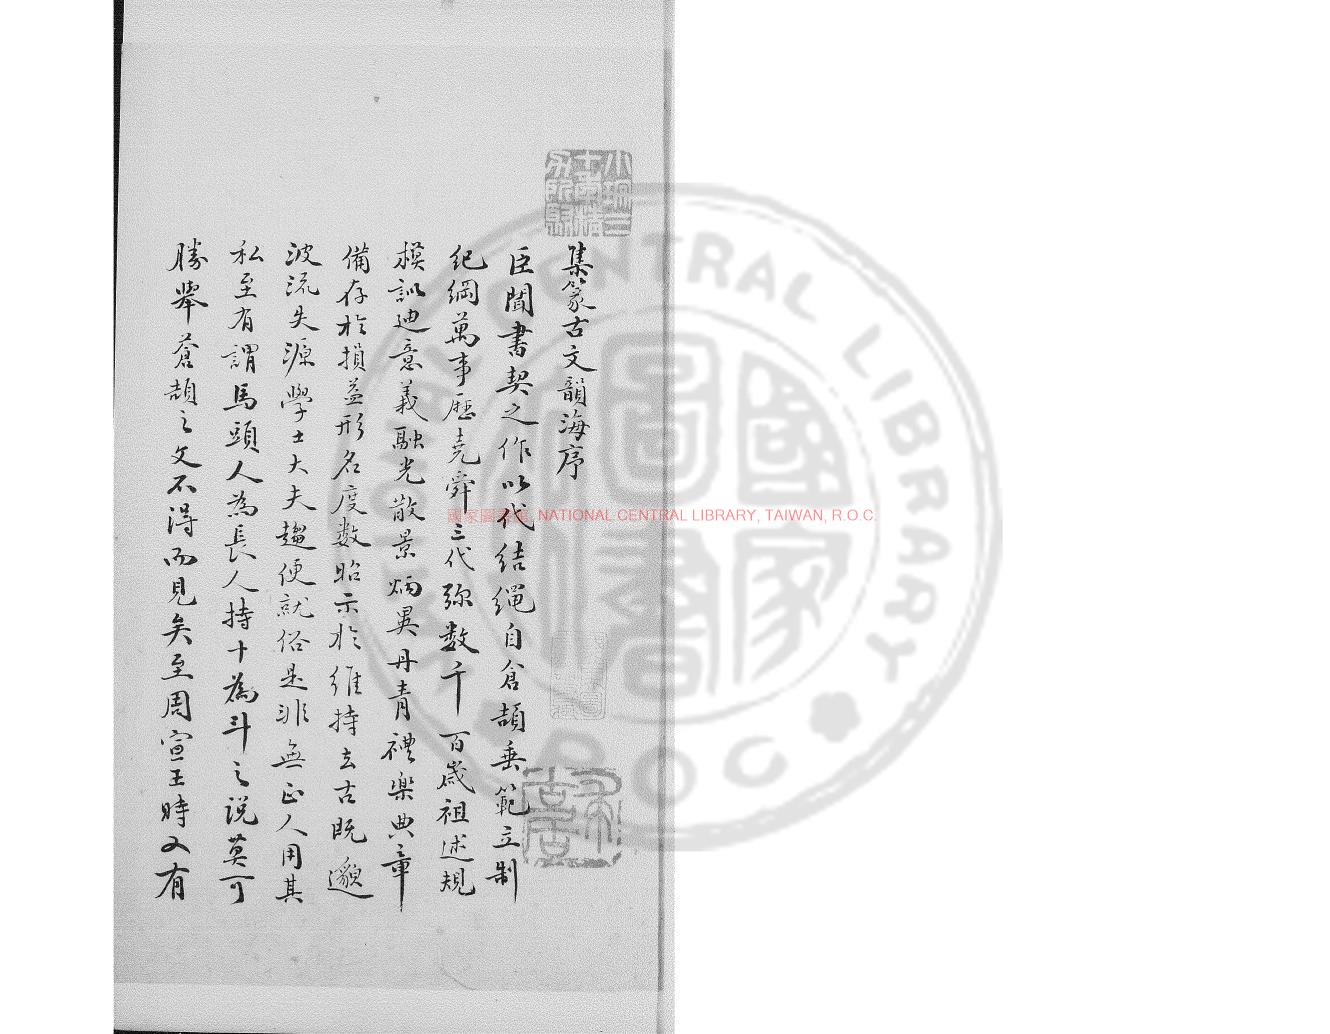 集篆古文韻海序
臣聞書契之作以代結繩自倉頡垂範立制
紀綱萬事歷堯舜三代弥数千百歲祖述規
模訓迪意義融光散景炳異丹青禮樂典章
備存於損益形名度数昭示於維持去古既邈
波流失源學士大夫趨便就俗是非無正人用其
私至有謂馬頭人為長人持十為斗之說莫可
勝舉蒼頡之文不得而見矣至周宣王時又有
國家圖書館, NATIONAL CENTRAL LIBRARY, TAIWAN, R.O.C.
NATIONAL CENTRAL LIBRARY
R.O.C.
國家圖書